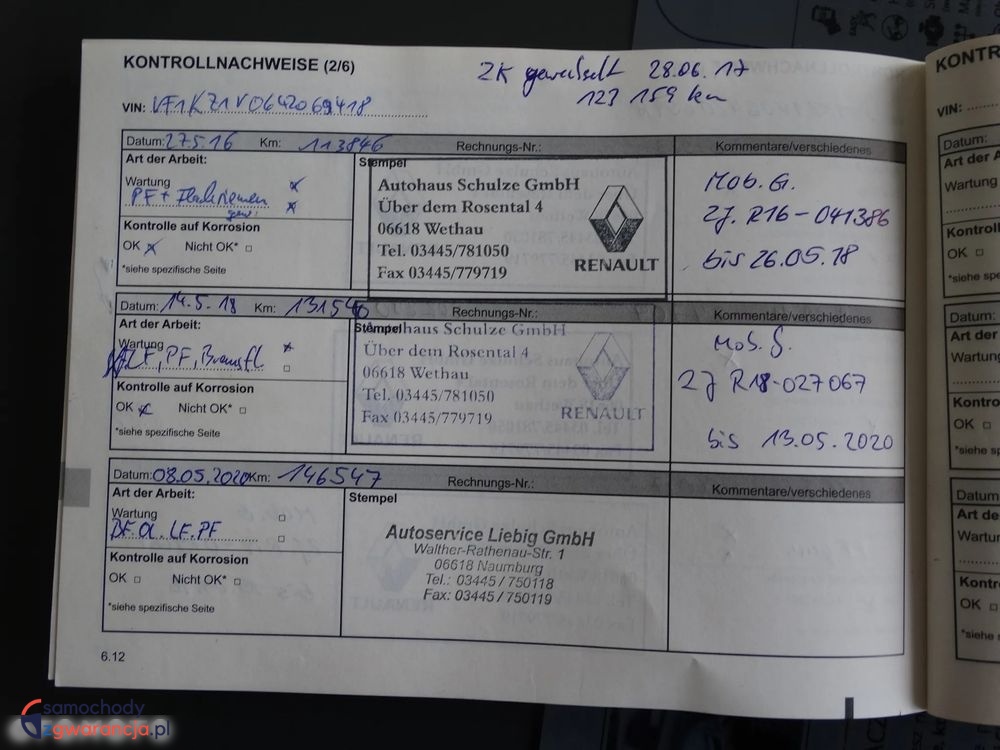 KONTROLLNACHWEISE (2/6)
ZK gewechselt 28.06.17
123 159 km
VIN: VF1KZ1V0642069418
Datum: 27.5.16 Km: 113846 Rechnungs-Nr.: Kommentare/verschiedenes
Art der Arbeit:
Stempel
Wartung x
PF + Flachriemen x
gew.
Kontrolle auf Korrosion
OK x Nicht OK* □
*siehe spezifische Seite
Autohaus Schulze GmbH
Über dem Rosental 4
06618 Wethau
Tel. 03445/781050
Fax 03445/779719
RENAULT
Mob. G.
2J. R16-041386
bis 26.05.18
Datum: 14.5.18 Km: 131540 Rechnungs-Nr.: Kommentare/verschiedenes
Art der Arbeit:
Stempel
Wartung x
LF, PF, Bremsfl. □
Kontrolle auf Korrosion
OK x Nicht OK* □
*siehe spezifische Seite
Autohaus Schulze GmbH
Über dem Rosental 4
06618 Wethau
Tel. 03445/781050
Fax 03445/779719
RENAULT
Mob. G.
2J R18-027067
bis 13.05.2020
Datum: 08.05.2020 Km: 146547 Rechnungs-Nr.: Kommentare/verschiedenes
Art der Arbeit:
Stempel
Wartung □
LF. PF □
Kontrolle auf Korrosion
OK □ Nicht OK* □
*siehe spezifische Seite
Autoservice Liebig GmbH
Walther-Rathenau-Str. 1
06618 Naumburg
Tel.: 03445 / 750118
Fax: 03445 / 750119
6.12
KONTR
VIN:
Datum:
Art der A
Wartung
Kontroll
OK □
*siehe spe
Datum:
Art der
Wartung
Kontro
OK □
*siehe s
Datum
Art de
Wartur
Kontr
OK □
*siehe
samochody
zgwarancja.pl